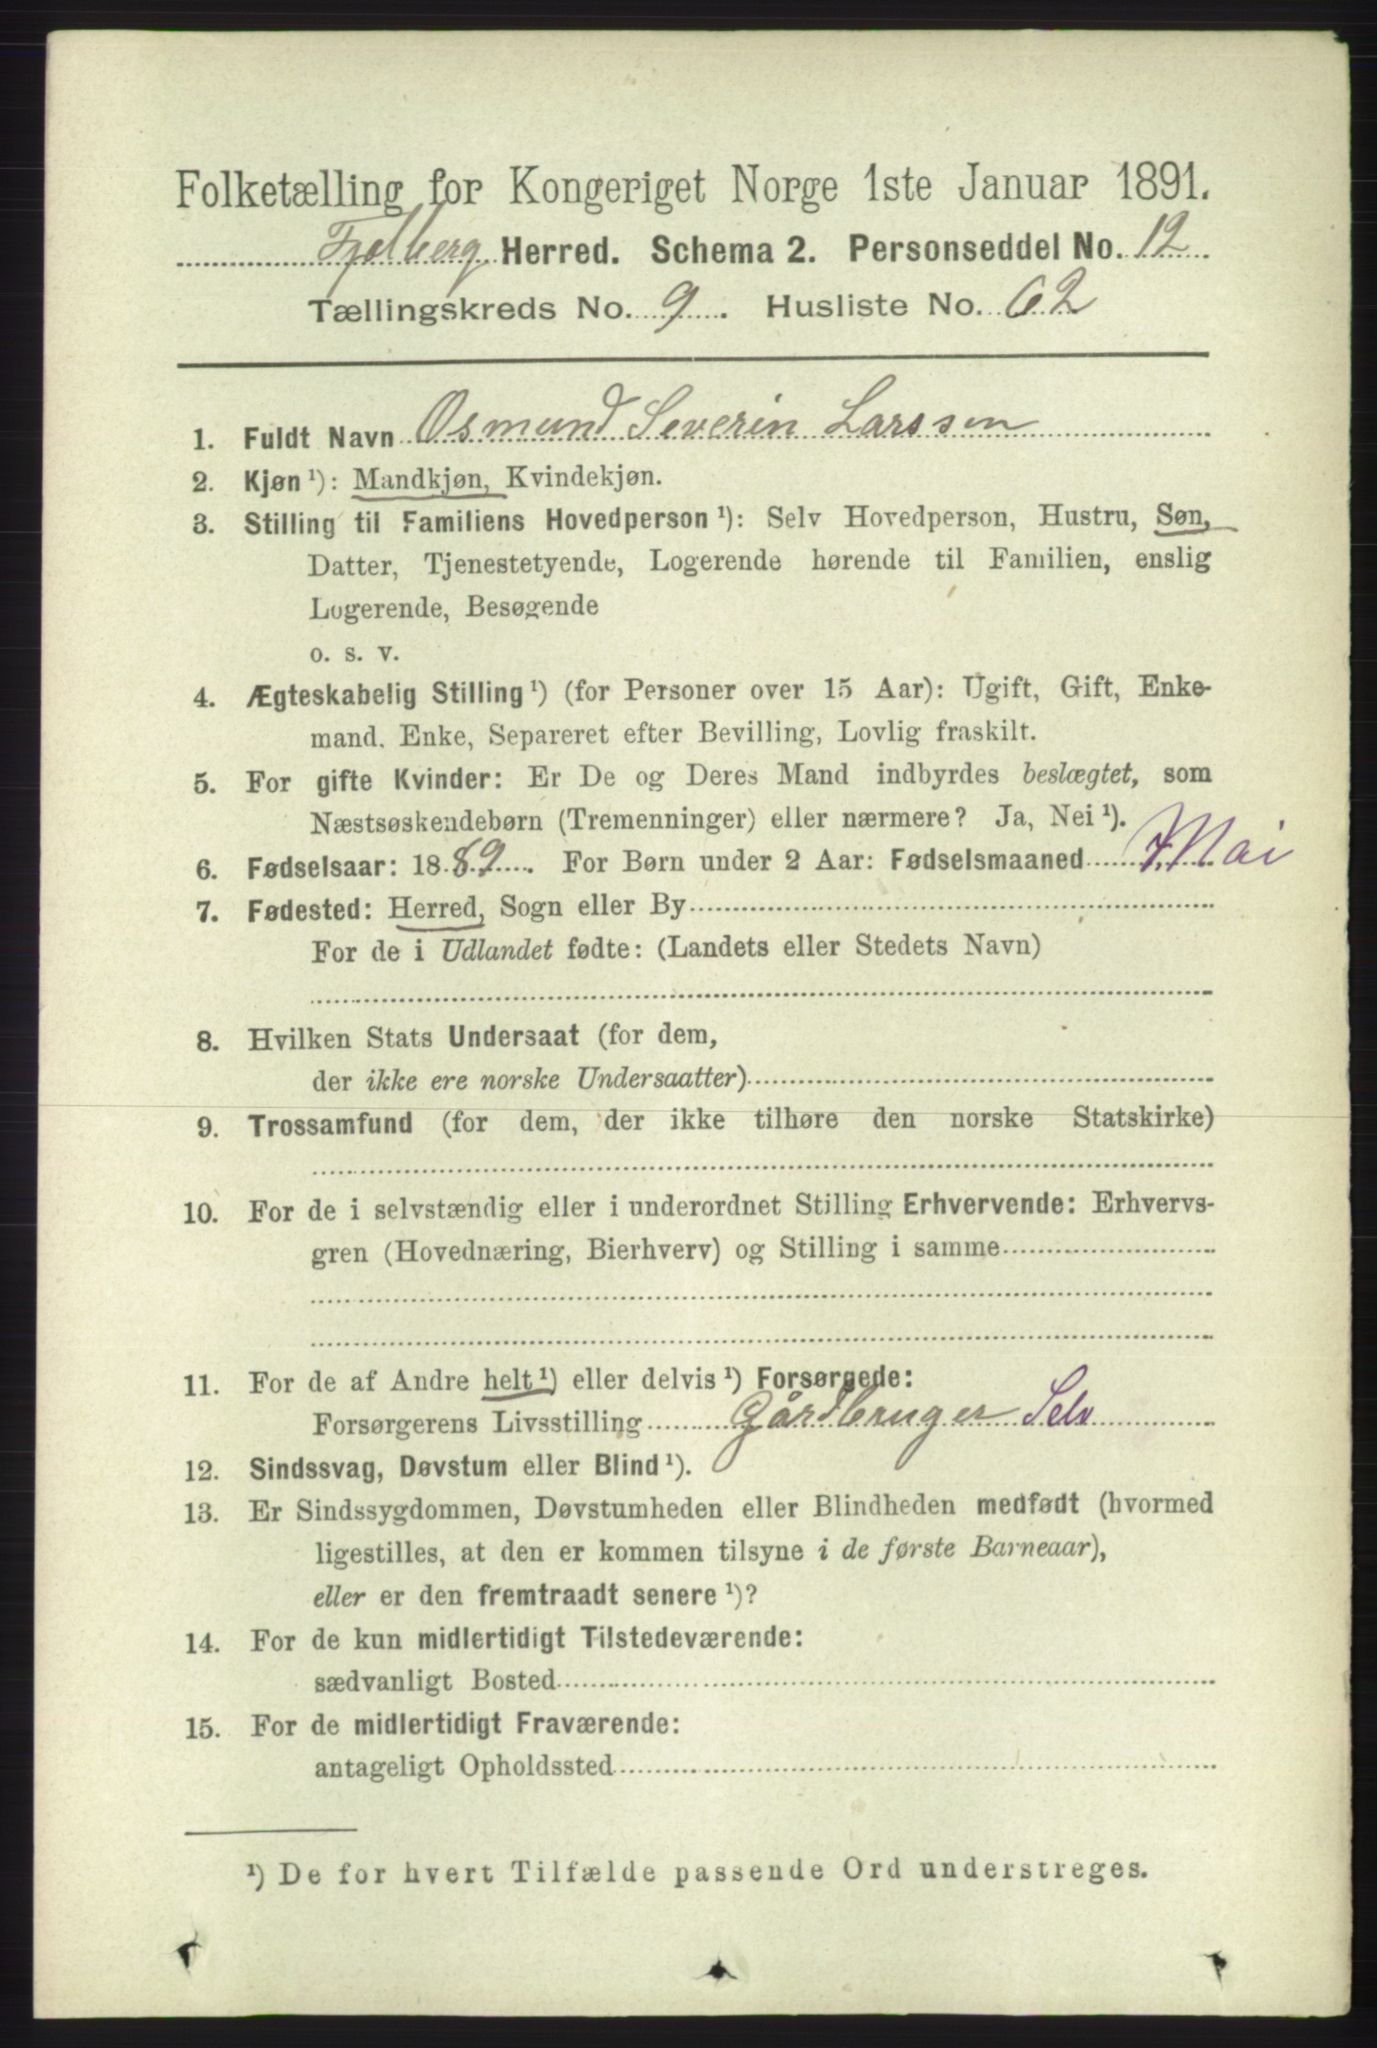 Folketælling for Kongeriget Norge 1ste Januar 1891.
Fjelberg Herred. Schema 2. Personseddel No. 12
Tællingskreds No. 9. Husliste No. 62
1. Fuldt Navn Osmund Severin Larssen
2. Kjøn ¹): Mandkjøn, Kvindekjøn.
3. Stilling til Familiens Hovedperson ¹): Selv Hovedperson, Hustru, Søn,
Datter, Tjenestetyende, Logerende hørende til Familien, enslig
Logerende, Besøgende
o. s. v.
4. Ægteskabelig Stilling ¹) (for Personer over 15 Aar): Ugift, Gift, Enke-
mand, Enke, Separeret efter Bevilling, Lovlig fraskilt.
5. For gifte Kvinder: Er De og Deres Mand indbyrdes beslægtet, som
Næstsøskendebørn (Tremenninger) eller nærmere? Ja, Nei ¹).
6. Fødselsaar: 1889. For Børn under 2 Aar: Fødselsmaaned Mai
7. Fødested: Herred, Sogn eller By
For de i Udlandet fødte: (Landets eller Stedets Navn)
8. Hvilken Stats Undersaat (for dem,
der ikke ere norske Undersaatter)
9. Trossamfund (for dem, der ikke tilhøre den norske Statskirke)
10. For de i selvstændig eller i underordnet Stilling Erhvervende: Erhvervs-
gren (Hovednæring, Bierhverv) og Stilling i samme
11. For de af Andre helt ¹) eller delvis ¹) Forsørgede:
Forsørgerens Livsstilling Gårdbruger Selv
12. Sindssvag, Døvstum eller Blind ¹).
13. Er Sindssygdommen, Døvstumheden eller Blindheden medfødt (hvormed
ligestilles, at den er kommen tilsyne i de første Barneaar),
eller er den fremtraadt senere ¹)?
14. For de kun midlertidigt Tilstedeværende:
sædvanligt Bosted
15. For de midlertidigt Fraværende:
antageligt Opholdssted
¹) De for hvert Tilfælde passende Ord understreges.